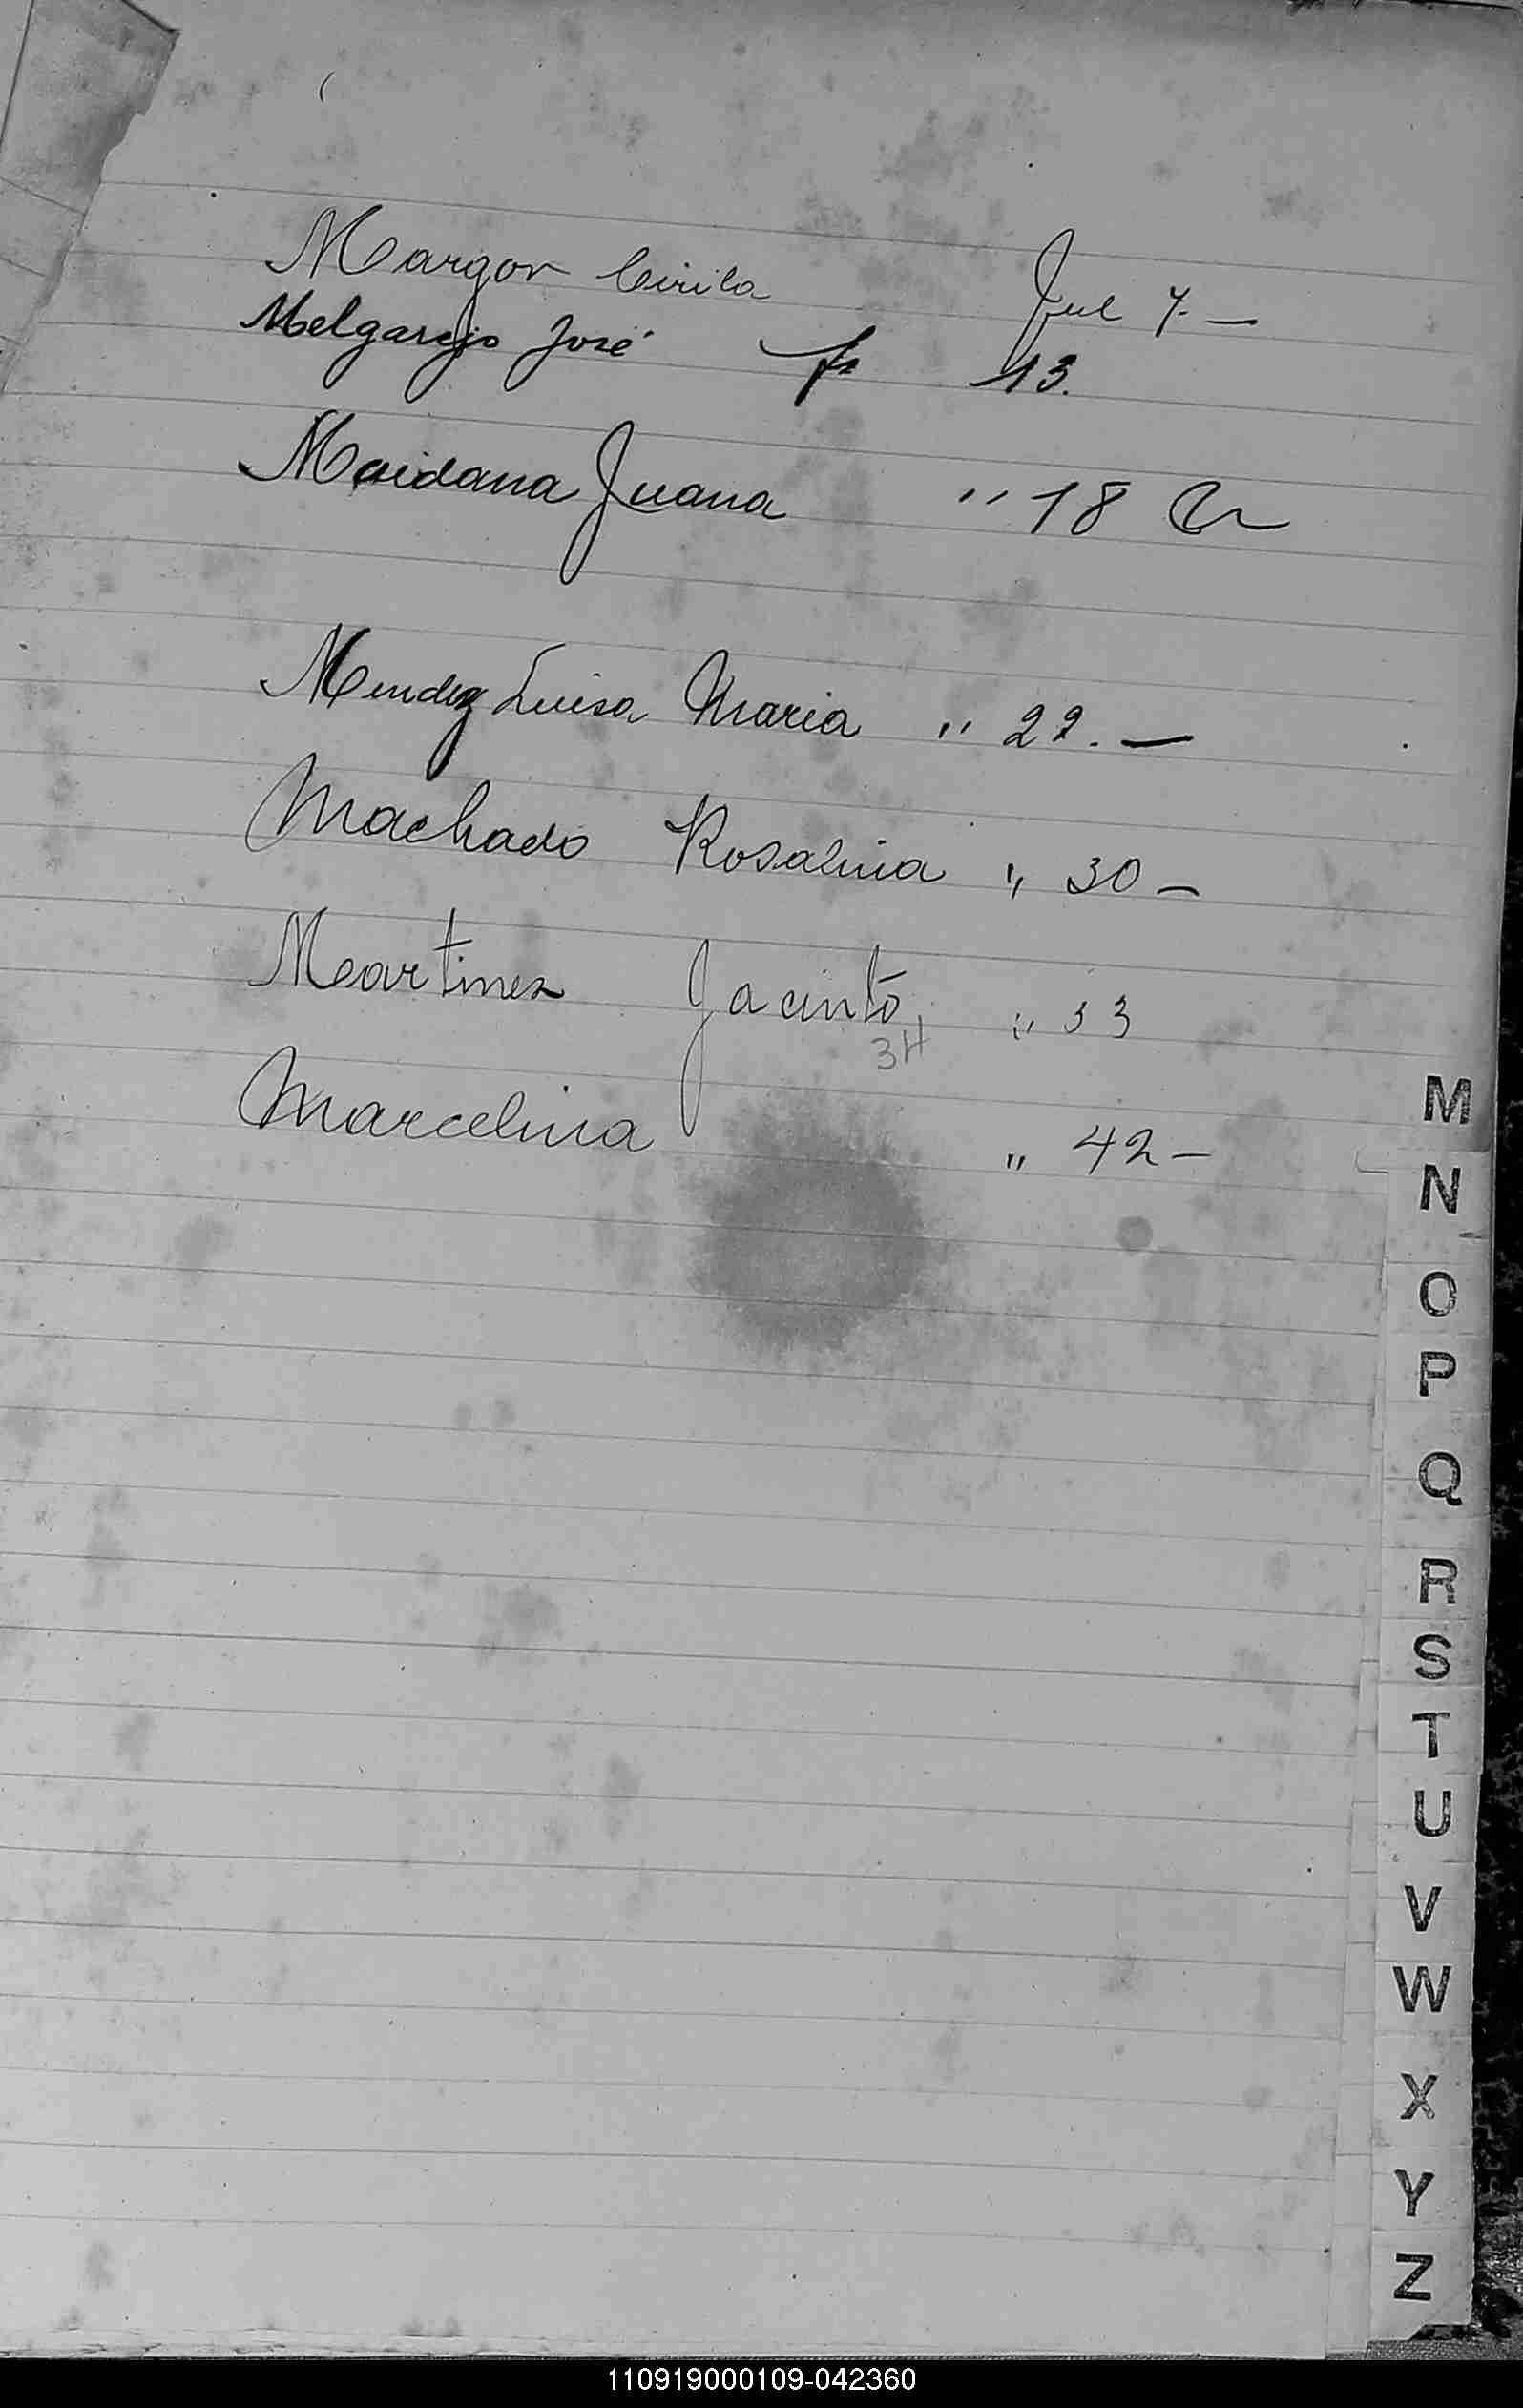 Margor Cirila Jul 7. —
Melgarejo José fs 13.
Maidana Juana " 18
Mendez Luisa Maria " 22. —
Machado Rosalina " 30 —
Martinez Jacinto " 33
34
Marcelina " 42 —
M
N
O
P
Q
R
S
T
U
V
W
X
Y
Z
110919000109-042360